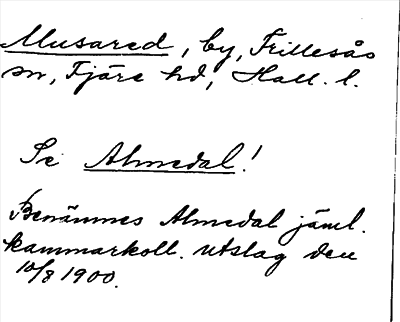 Musared, by, Frillesås
sn, Fjäre hd, Hall. l.
Se Almedal!
Benämnes Almedal jäml.
kammarkoll. utslag den
10/8 1900.